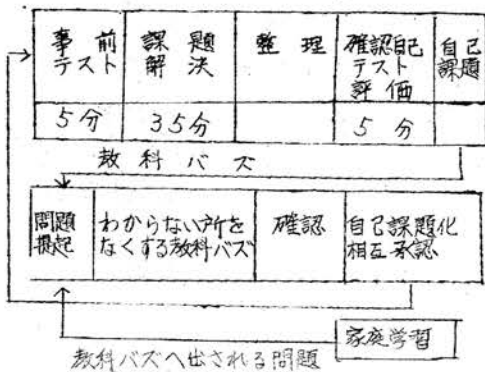 事前テスト
課題解決
整理
確認自己テスト評価
自己課題
5分
35分
5分
教科バズ
問題提起
わからない所をなくする教科バズ
確認
自己課題化相互承認
家庭学習
教科バズへ出される問題